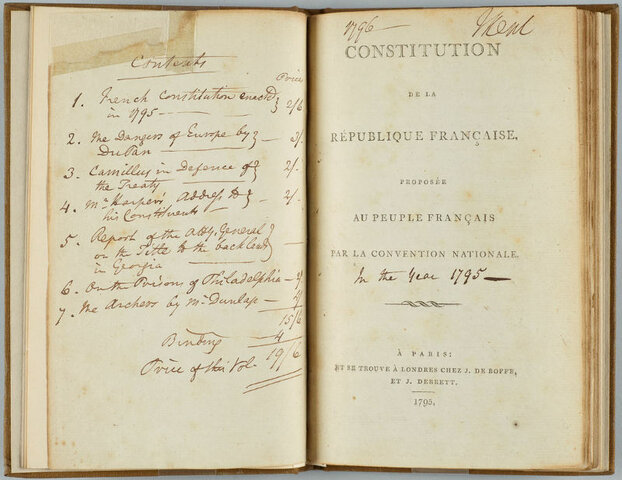 Contents
Price
1. French Constitution enacted
in 1795 — 2/6
2. The Dangers of Europe by
DuPan — 3/.
3. Camillus in Defence of
the Treaty — 2/.
4. Mr Harper's Address to
his Constituents — 2/.
5. Report of the Atty General
on the Title to the back land
in Georgia —
6. On the Prisons of Philadelphia —
7. The Archers by Mr Dunlap —
15/6
Binding 4
Price of this Vol. 19/6
1796
CONSTITUTION
DE LA
RÉPUBLIQUE FRANÇAISE,
PROPOSÉE
AU PEUPLE FRANÇAIS
PAR LA CONVENTION NATIONALE.
In the Year 1795 —
À PARIS:
ET SE TROUVE À LONDRES CHEZ J. DE BOFFE,
ET J. DEBRETT.
1795.